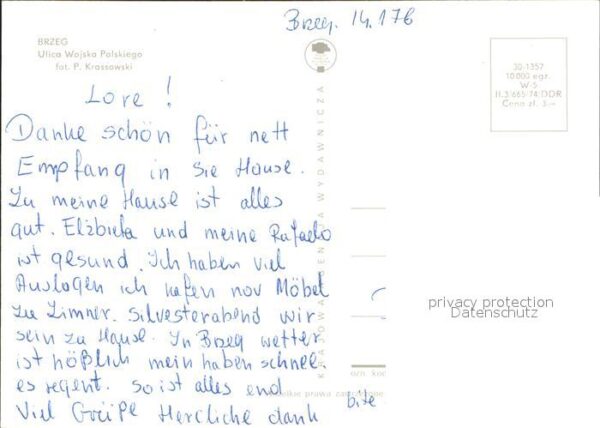 Brzeg. 14.176
BRZEG
Ulica Wojska Polskiego
fot. P. Krassowski
30-1357
10 000 egz.
W-5
H.3/665/74/DDR
Cena zł. 3.—
KRAJOWA AGENCJA WYDAWNICZA
Lore!
Danke schön für nett
Empfang in Sie House.
Zu meine Hause ist alles
gut. Elżbieta und meine Rafaelo
ist gesund. Ich haben viel
Auslogen ich kafen nov Möbel
zu Zimner. Silvesterabend wir
sein zu Hause. In Brzeg wetter
ist häßlich mein haben schnee.
es regent. So ist alles end
Viel Grüße Hercliche dank bite
privacy protection
Datenschutz